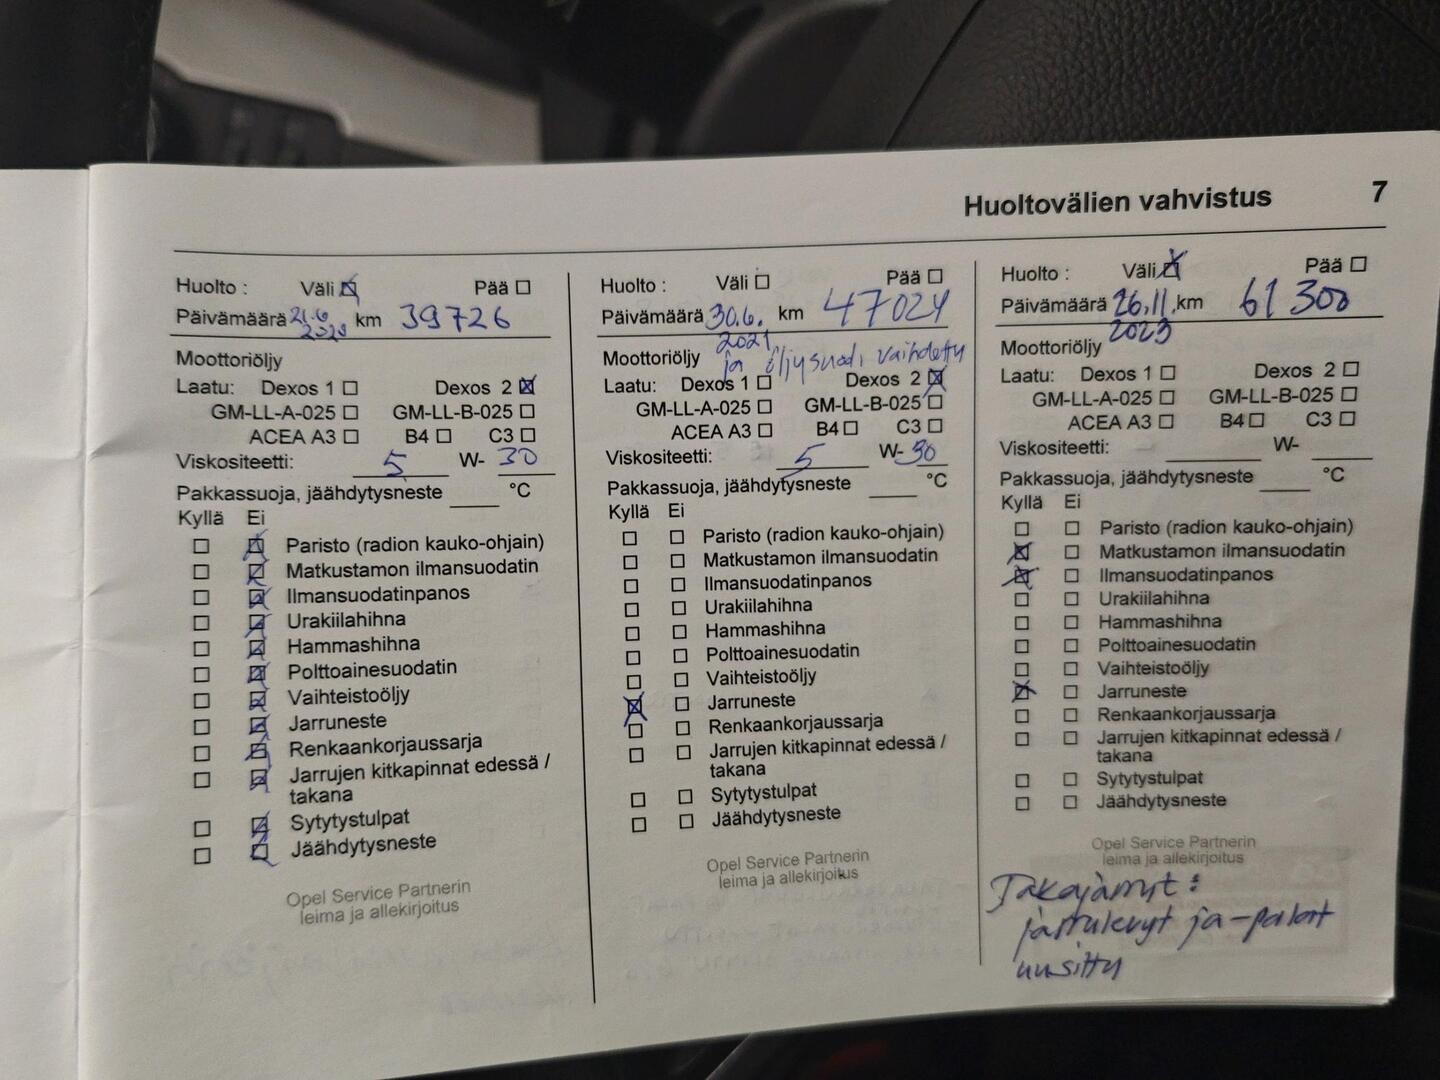 Huoltovälien vahvistus 7
Huolto : Väli Pää
Päivämäärä 21.6 km 39726
2020
Moottoriöljy
Laatu: Dexos 1 Dexos 2
GM-LL-A-025 GM-LL-B-025
ACEA A3 B4 C3
Viskositeetti: 5 W- 30
Pakkassuoja, jäähdytysneste °C
Kyllä Ei
Paristo (radion kauko-ohjain)
Matkustamon ilmansuodatin
Ilmansuodatinpanos
Urakiilahihna
Hammashihna
Polttoainesuodatin
Vaihteistoöljy
Jarruneste
Renkaankorjaussarja
Jarrujen kitkapinnat edessä /
takana
Sytytystulpat
Jäähdytysneste
Opel Service Partnerin
leima ja allekirjoitus
Huolto : Väli Pää
Päivämäärä 30.6. km 47024
2021
Moottoriöljy ja öljysuod. vaihdettu
Laatu: Dexos 1 Dexos 2
GM-LL-A-025 GM-LL-B-025
ACEA A3 B4 C3
Viskositeetti: 5 W- 30
Pakkassuoja, jäähdytysneste °C
Kyllä Ei
Paristo (radion kauko-ohjain)
Matkustamon ilmansuodatin
Ilmansuodatinpanos
Urakiilahihna
Hammashihna
Polttoainesuodatin
Vaihteistoöljy
Jarruneste
Renkaankorjaussarja
Jarrujen kitkapinnat edessä /
takana
Sytytystulpat
Jäähdytysneste
Opel Service Partnerin
leima ja allekirjoitus
Huolto : Väli Pää
Päivämäärä 26.11. km 61 300
2023
Moottoriöljy
Laatu: Dexos 1 Dexos 2
GM-LL-A-025 GM-LL-B-025
ACEA A3 B4 C3
Viskositeetti: W-
Pakkassuoja, jäähdytysneste °C
Kyllä Ei
Paristo (radion kauko-ohjain)
Matkustamon ilmansuodatin
Ilmansuodatinpanos
Urakiilahihna
Hammashihna
Polttoainesuodatin
Vaihteistoöljy
Jarruneste
Renkaankorjaussarja
Jarrujen kitkapinnat edessä /
takana
Sytytystulpat
Jäähdytysneste
Opel Service Partnerin
leima ja allekirjoitus
Takajarrut:
jarrulevyt ja -palat
uusittu